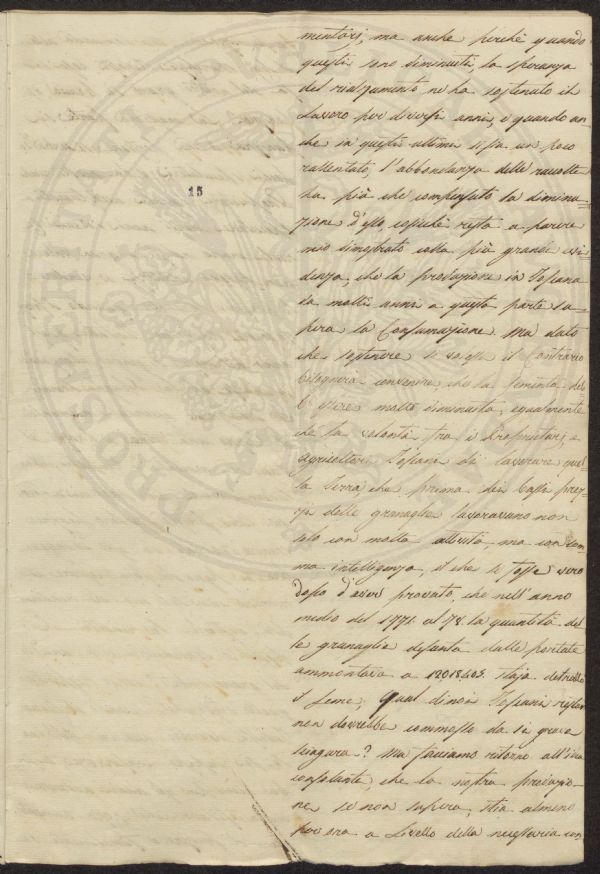 mentarj, ma anche perchè quando
questi sono diminuiti, la speranza
del rialzamento ne ha sostenuto il
Lavoro per diversi anni, e quando an-
che in questi ultimi si sia un poco
rallentato, l'abbondanza delle raccolte
ha più che compensato la diminu=
zione d'esso, cosichè resta a parere
mio dimostrato colla più grande evi
denza, che la produzione in Toscana
da molti anni a questa parte su-
pera la Consumazione. Ma dato
che sostenere si volesse il Contrario
bisogneria convenire, che la sementa deb
b' essere molto diminuita, egualmente
che la volontà tra i Proprietarj, e
agricoltori Toscani di lavorare quel
la Terra, che prima dei bassi prez-
zi delle granaglie lavoravano non
solo con molta attività, ma con som
ma intelligenza, il che se fosse vero
dopo d'aver provato, che nell'anno
medio del 1771. al 78. la quantità del
le granaglie desunta dalle portate
ammontava a 12018405. staja detratto
il seme, Qual di noi Toscani restar
non dovrebbe commosso da sì grave
sciagura? Ma facciamo ritorno all'idea
consolante, che la nostra produzio-
ne se non supera, stia almeno
per ora a Livello della necessaria con
15
PROSPERITATI PUBLICAE